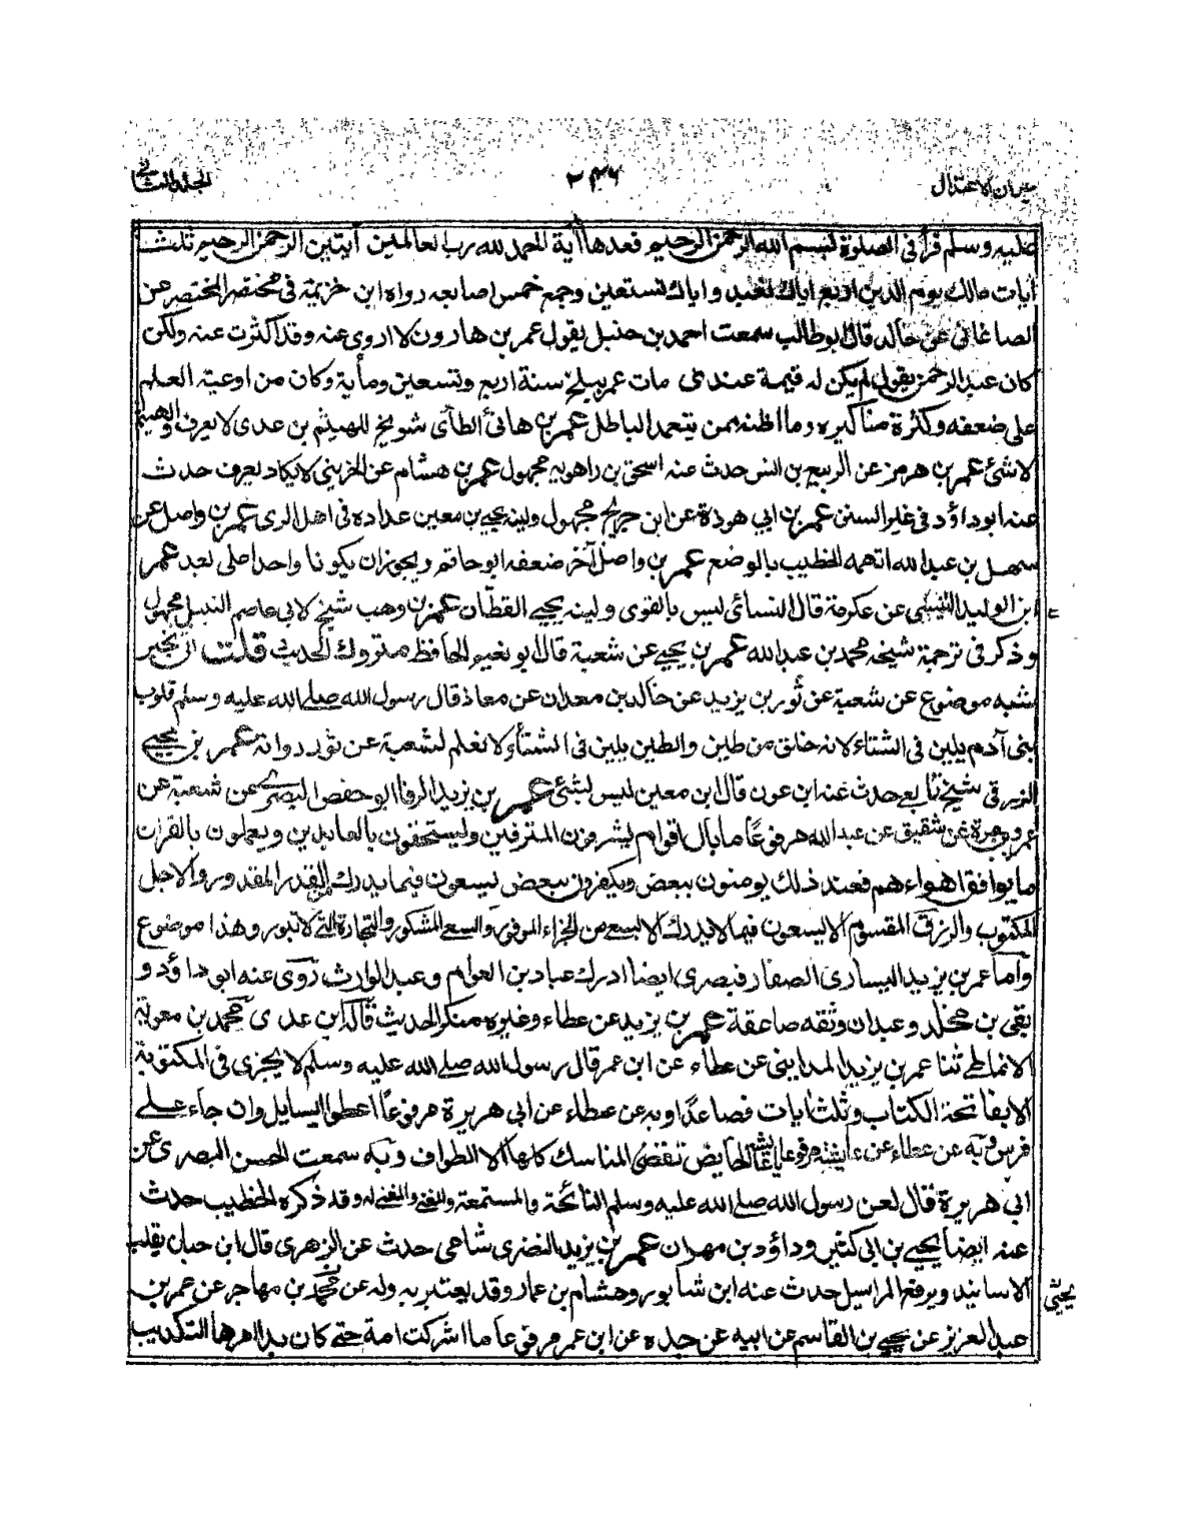 ميزان الاعتدال ٢٤٦ الجلد الثاني
عليه وسلم قرأ في الصلوة بسم الله الرحمن الرحيم فعدها آية الحمد لله رب العالمين آيتين الرحمن الرحيم ثلث
ايات مالك يوم الدين اربع اياك نعبد واياك نستعين وجمع خمس اصابعه رواه ابن خزيمة في مختصر المختصر عن
الصاغاني عن خالد قال ابو طالب سمعت احمد بن حنبل يقول عمر بن هارون لا اروى عنه وقد اكثرت عنه ولكن
كان عبد الرحمن يقول لم يكن له قيمة عندى مات عمر ببلخ سنة اربع وتسعين ومأية وكان من اوعية العلم
على ضعفه وكثرة مناكيره وما اظنه ممن يتعمد الباطل عمر بن هانئ الطأى شويخ للهيثم بن عدى لا يعرف والهيثم
لا شئ عمر بن هرمز عن الربيع بن انس حدث عنه اسحق بن راهويه مجهول عمر بن هشام عن الخريبى لا يكاد يعرف حدث
عنه ابو داؤد فى غير السنن عمر بن ابي هوذة عن ابن جريج مجهول ولينه يحيے بن معين عداده فى اهل الرى عمر بن واصل عن
سهل بن عبد الله اتهمه الخطيب بالوضع عمر بن واصل آخر ضعفه ابو حاتم ويجوز ان يكونا واحدا صلى لعبد عمر
ابن الوليد الشنى عن عكرمة قال النسائى ليس بالقوى ولينه يحيے القطان عمر بن وهب شيخ لابى عاصم النبيل مجهول
وذكر فى ترجمة شيخه محمد بن عبد الله عمر بن يحيے عن شعبة قال ابو نعيم الحافظ متروك الحديث قلت اتى بخبر
شبه موضوع عن شعبة عن ثور بن يزيد عن خالد بن معدان عن معاذ قال رسول الله صلے الله عليه وسلم قلوب
بنى آدم يلين فى الشتاء لانه خلق من طين والطين يلين فى الشتاء ولا نعلم لشعبة عن ثور رواية عمر بن يحيے
الزرقى شيخ تابعى حدث عنه ابن عون قال ابن معين ليس بشئ عمر بن يزيد الرفا ابو حفص البصرى عن شعبة عن
عمرو بن مرة عن شقيق عن عبد الله مرفوعا ما بال اقوام يشرفون المترفين ويستخفون بالعابدين ويعملون بالقران
ما يوافق اهواءهم فعند ذلك يومنون ببعض ويكفرون ببعض يسعون فيما يدرك بالقدر المقدور والاجل
المكتوب والرزق المقسوم الا يسعون فيما لا يدرك الا بالسعى من الجزاء الموفور والسعے المشكور والتجارة التے لا تبور وهذا موضوع
واما عمر بن يزيد اليسارى الصفار فبصرى ايضا ادرك عباد بن العوام وعبد الوارث روى عنه ابو داؤد و
بقى بن مخلد وعبدان وثقه صاعقة عمر بن يزيد عن عطاء وغيره منكر الحديث قاله ابن عدى محمد بن معوية
الانماطے ثنا عمر بن يزيد المداينى عن عطاء عن ابن عمر قال رسول الله صلے الله عليه وسلم لا يجزى فى المكتوبة
الا بفاتحة الكتاب وثلث ايات فصاعدا وبه عن عطاء عن ابى هريرة مرفوعا اعطوا السايل وان جاء علے
فرس وبه عن عطاء عن عايشة مرفوعا الحايض تقضى المناسك كلها الا الطواف وبه سمعت الحسن البصرى عن
ابى هريرة قال لعن رسول الله صلے الله عليه وسلم النائحة والمستمعة والمغنى والمغنى له وقد ذكره الخطيب حدث
عنه ايضا يحيے بن ابى كثير وداؤد بن مهران عمر بن يزيد النضرى شامى حدث عن الزهرى قال ابن حبان يقلب
الاسانيد ويرفع المراسيل حدث عنه ابن شابور وهشام بن عمار وقد يعتبر به وله عن محمد بن مهاجر عن عمر بن
يحيى
عبد العزيز عن يحيے بن القاسم عن ابيه عن جده عن ابن عمر مرفوعا ما اشركت امة حتے كان بدا امرها التكذيب